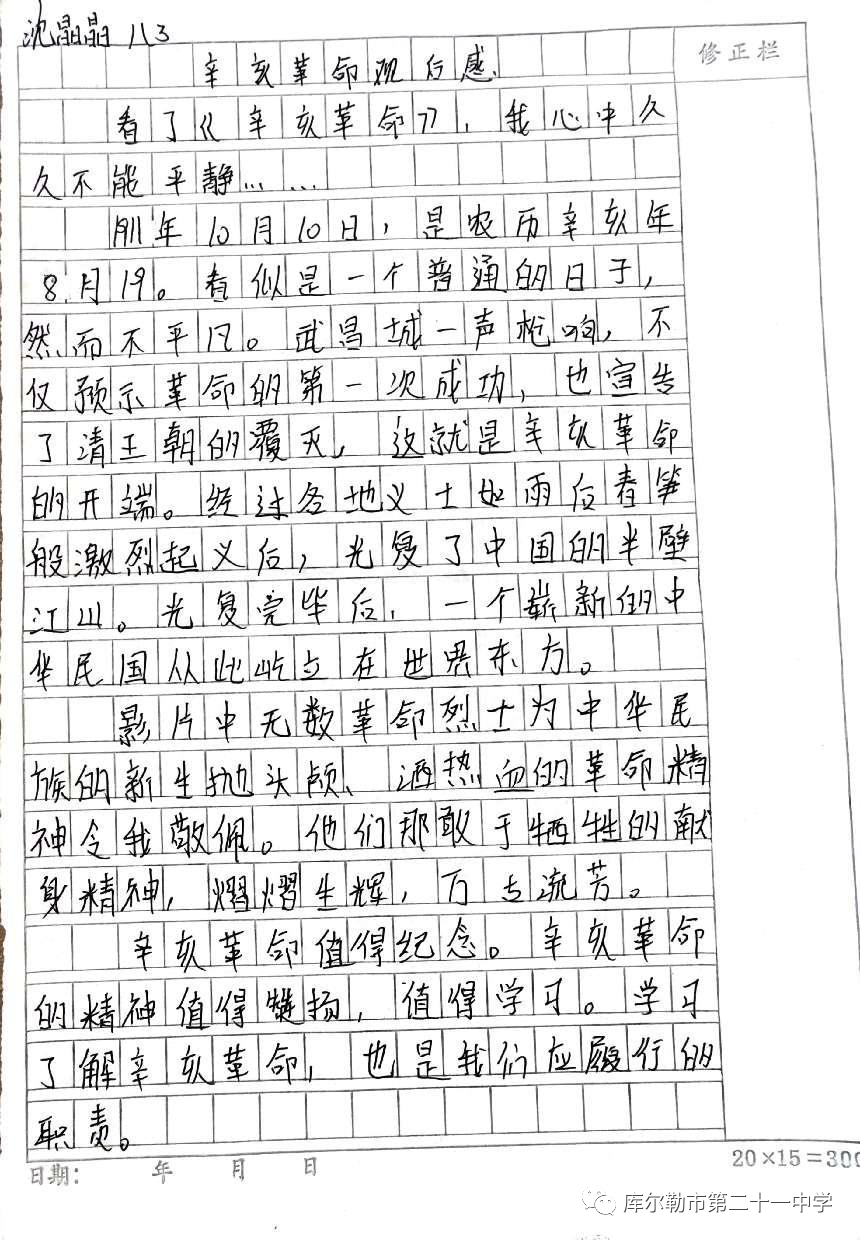 沈晶晶 八3
修正栏
辛亥革命观后感.
看了《辛亥革命》，我心中久
久不能平静……
1911年10月10日，是农历辛亥年
8.月19。看似是一个普通的日子，
然而不平凡。武昌城一声枪响，不
仅预示革命的第一次成功，也宣告
了清王朝的覆灭，这就是辛亥革命
的开端。经过各地义士如雨后春笋
般激烈起义后，光复了中国的半壁
江山。光复完毕后，一个崭新的中
华民国从此屹立在世界东方。
影片中无数革命烈士为中华民
族的新生抛头颅、洒热血的革命精
神令我敬佩。他们那敢于牺牲的献
身精神，熠熠生辉，万古流芳。
辛亥革命值得纪念。辛亥革命
的精神值得扬，值得学习。学习
了解辛亥革命，也是我们应履行的
职责。
日期： 年 月 日
20×15＝300
库尔勒市第二十一中学